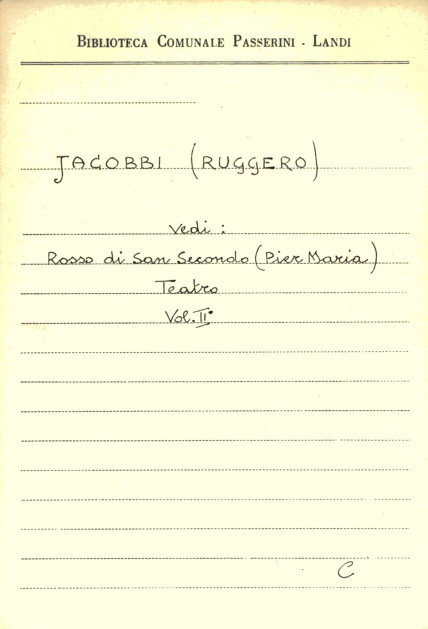 BIBLIOTECA COMUNALE PASSERINI - LANDI
JACOBBI (RUGGERO)
Vedi :
Rosso di San Secondo (Pier Maria)
Teatro
Vol. II°
C